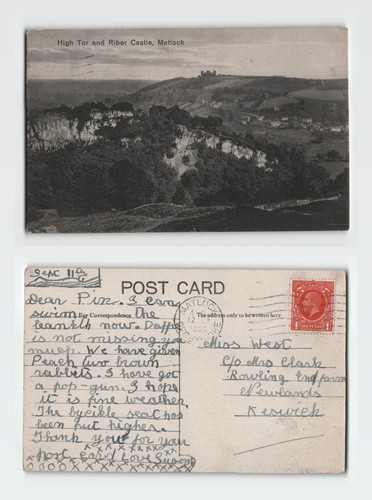 High Tor and Riber Castle, Matlock
POST CARD
For Correspondence
The address only to be written here.
Sept 11th
Dear Pin. I can
swim One
leanth now. Daffie
is not missing you
much. We have given
Peach two brown
rabbits. I have got
a pop-gun. I hope
it is fine weather.
The bycikle seat has
been put higher.
Thank you for you
Post Card Love Susan
MATLOCK
12
DERBYSHIRE
Miss West
C/o Mrs Clark
Rowling End farm
Newlands
Keswick